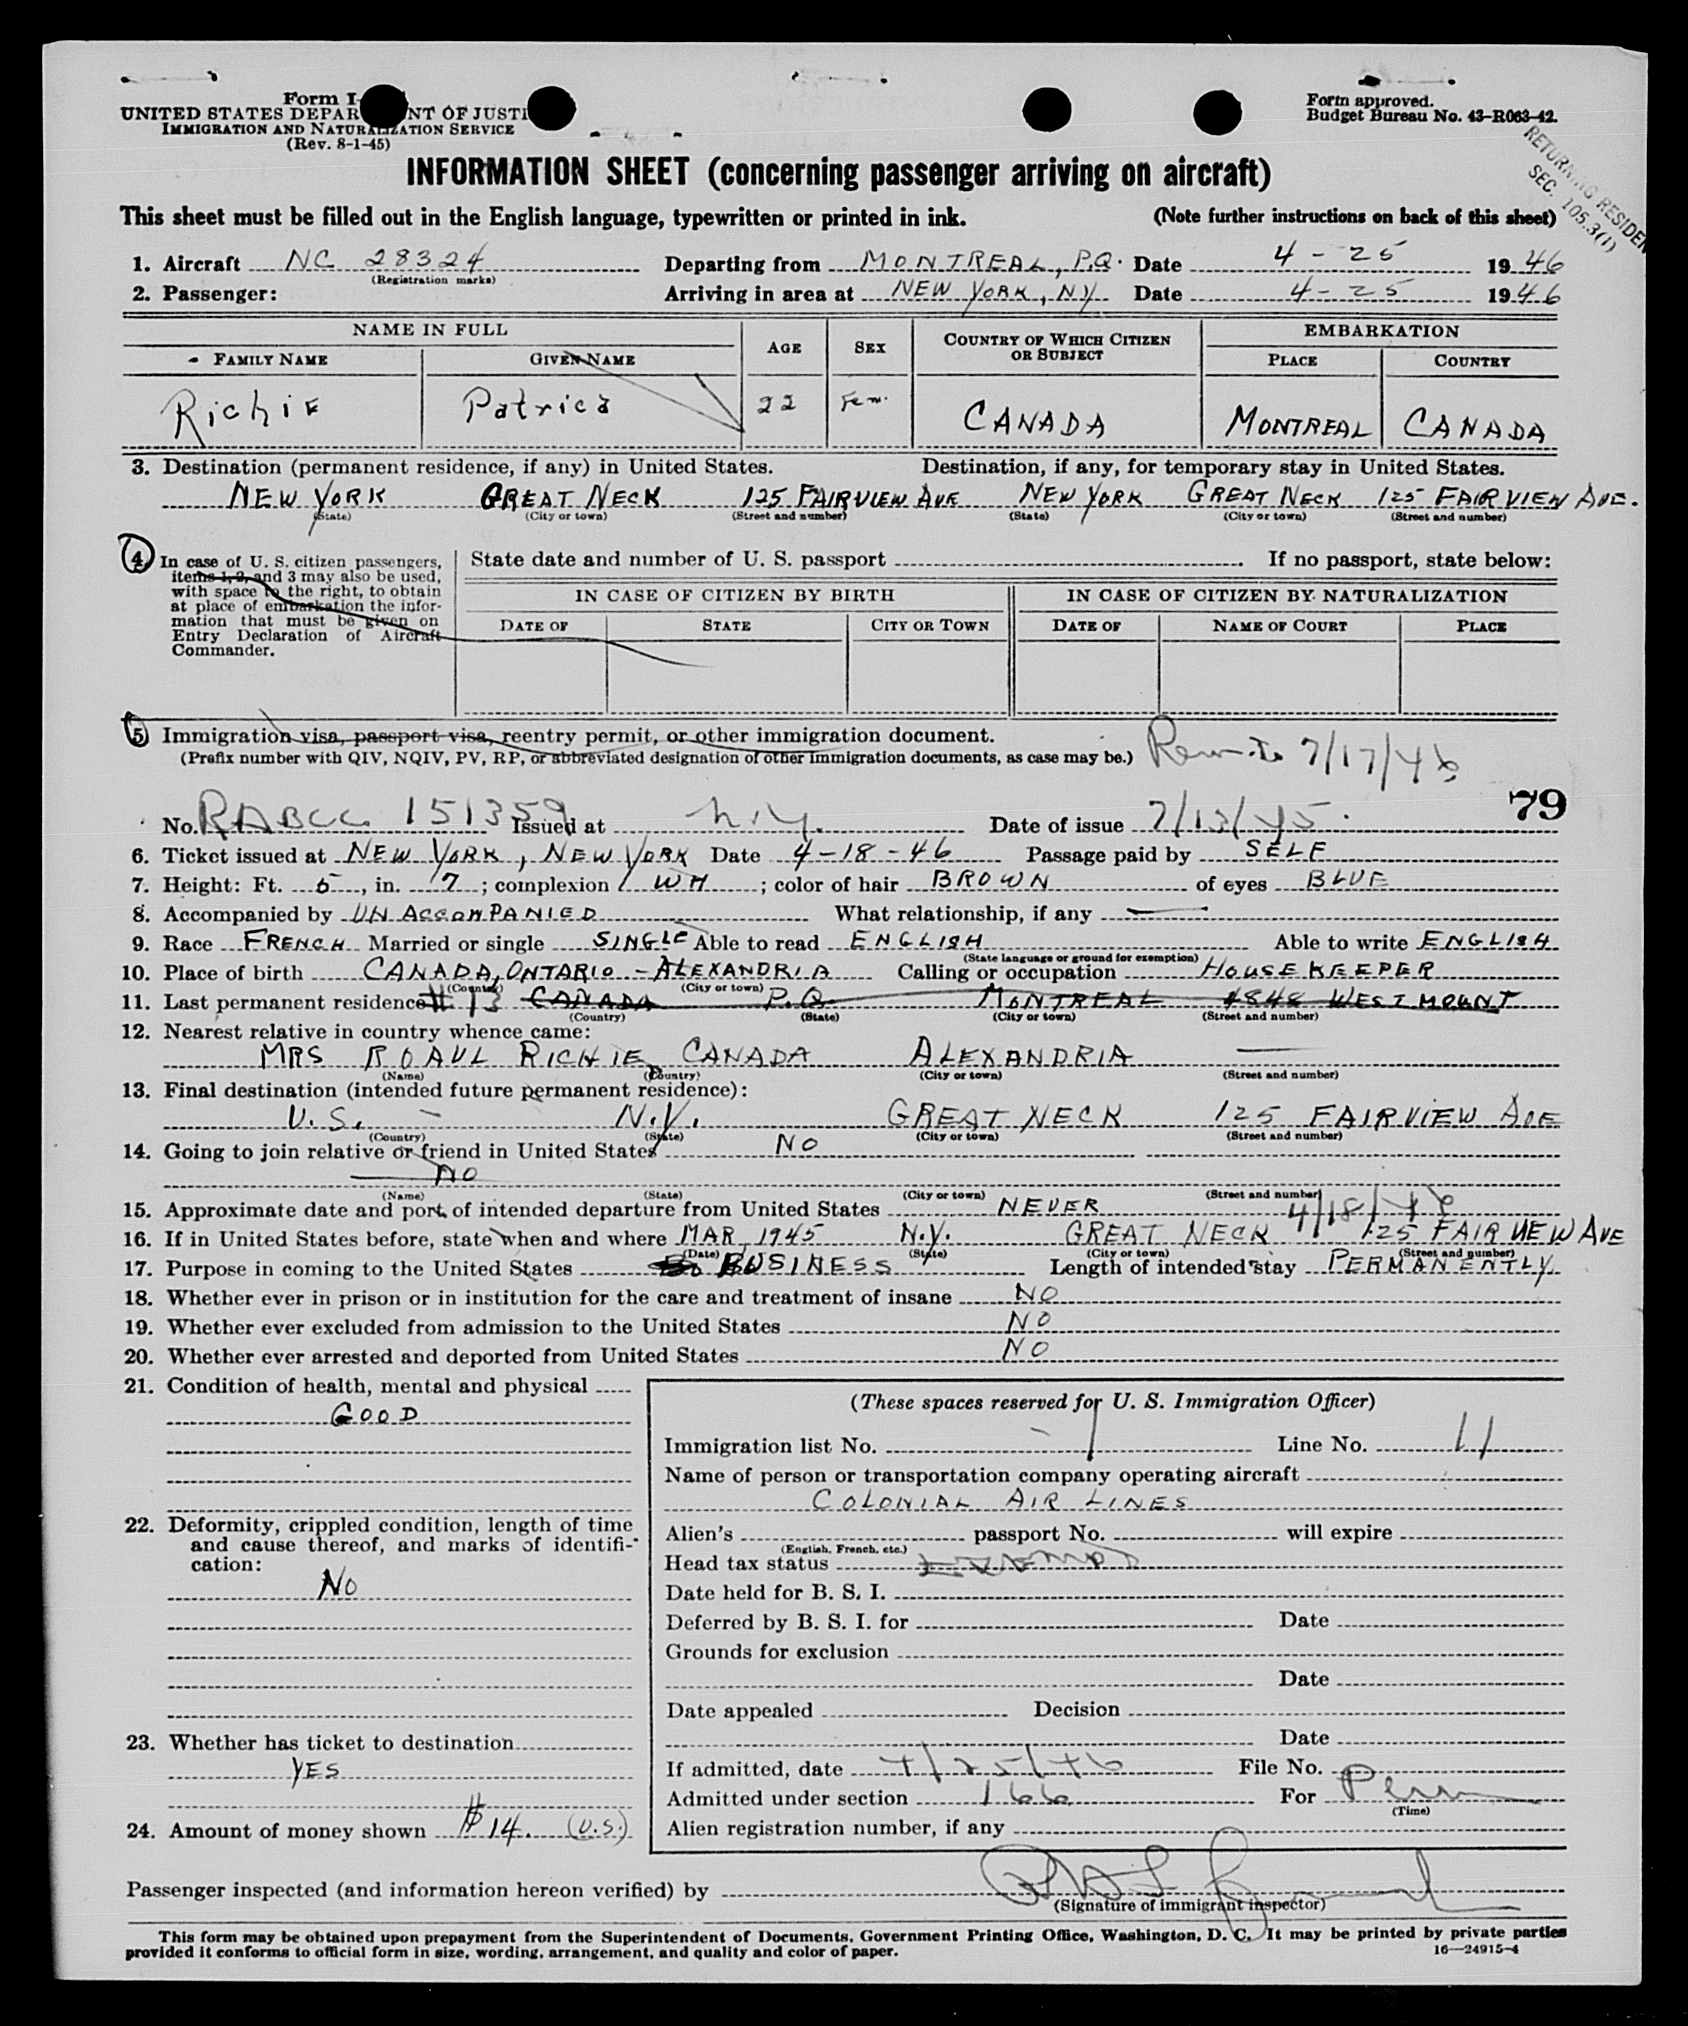 Form I-
UNITED STATES DEPAR NT OF JUSTI
IMMIGRATION AND NATURALIZATION SERVICE
(Rev. 8-1-45)
Form approved.
Budget Bureau No. 43-R063-42.
RETURNING RESIDEN
SEC. 105.3(1)
INFORMATION SHEET (concerning passenger arriving on aircraft)
This sheet must be filled out in the English language, typewritten or printed in ink. (Note further instructions on back of this sheet)
1. Aircraft NC 28324 Departing from MONTREAL, P.Q. Date 4-25 1946
(Registration marks)
2. Passenger: Arriving in area at NEW YORK, NY Date 4-25 1946
NAME IN FULL AGE SEX COUNTRY OF WHICH CITIZEN OR SUBJECT EMBARKATION
FAMILY NAME GIVEN NAME PLACE COUNTRY
Richie Patrica 22 Fem. CANADA MONTREAL CANADA
3. Destination (permanent residence, if any) in United States. Destination, if any, for temporary stay in United States.
NEW YORK GREAT NECK 125 FAIRVIEW AVE NEW YORK GREAT NECK 125 FAIRVIEW AVE.
(State) (City or town) (Street and number) (State) (City or town) (Street and number)
4. In case of U. S. citizen passengers, items 1, 2, and 3 may also be used, with space to the right, to obtain at place of embarkation the information that must be given on Entry Declaration of Aircraft Commander.
State date and number of U. S. passport If no passport, state below:
IN CASE OF CITIZEN BY BIRTH IN CASE OF CITIZEN BY NATURALIZATION
DATE OF STATE CITY OR TOWN DATE OF NAME OF COURT PLACE
5 Immigration visa, passport visa, reentry permit, or other immigration document.
(Prefix number with QIV, NQIV, PV, RP, or abbreviated designation of other immigration documents, as case may be.) 7/17/46
79
No. RABCC 151359 Issued at N.Y. Date of issue 7/13/45.
6. Ticket issued at NEW YORK, NEW YORK Date 4-18-46 Passage paid by SELF
7. Height: Ft. 5, in. 7; complexion WH; color of hair BROWN of eyes BLUE
8. Accompanied by UNACCOMPANIED What relationship, if any —
9. Race FRENCH Married or single SINGLE Able to read ENGLISH Able to write ENGLISH
(State language or ground for exemption)
10. Place of birth CANADA, ONTARIO - ALEXANDRIA Calling or occupation HOUSEKEEPER
(Country) (City or town)
11. Last permanent residence #13 CANADA P.Q. MONTREAL 4848 WESTMOUNT
(Country) (State) (City or town) (Street and number)
12. Nearest relative in country whence came:
MRS ROAUL RICHIE CANADA ALEXANDRIA —
(Name) (Country) (City or town) (Street and number)
13. Final destination (intended future permanent residence):
U.S. - N.Y. GREAT NECK 125 FAIRVIEW AVE
(Country) (State) (City or town) (Street and number)
14. Going to join relative or friend in United States NO
NO
(Name) (State) (City or town) (Street and number)
15. Approximate date and port of intended departure from United States NEVER 4/18/46
16. If in United States before, state when and where MAR 1945 N.Y. GREAT NECK 125 FAIRVIEW AVE
(Date) (State) (City or town) (Street and number)
17. Purpose in coming to the United States BUSINESS Length of intended stay PERMANENTLY
18. Whether ever in prison or in institution for the care and treatment of insane NO
19. Whether ever excluded from admission to the United States NO
20. Whether ever arrested and deported from United States NO
21. Condition of health, mental and physical
GOOD
22. Deformity, crippled condition, length of time and cause thereof, and marks of identification:
NO
23. Whether has ticket to destination
YES
24. Amount of money shown $14. (U.S.)
(These spaces reserved for U. S. Immigration Officer)
Immigration list No. 1 Line No. 11
Name of person or transportation company operating aircraft
COLONIAL AIR LINES
Alien's passport No. will expire
(English, French, etc.)
Head tax status EXEMPT
Date held for B. S. I.
Deferred by B. S. I. for Date
Grounds for exclusion
Date
Date appealed Decision
Date
If admitted, date 4/25/46 File No.
Admitted under section 166 For Perm
(Time)
Alien registration number, if any
Passenger inspected (and information hereon verified) by
(Signature of immigrant inspector)
This form may be obtained upon prepayment from the Superintendent of Documents, Government Printing Office, Washington, D. C. It may be printed by private parties
provided it conforms to official form in size, wording, arrangement, and quality and color of paper. 16—24915-4